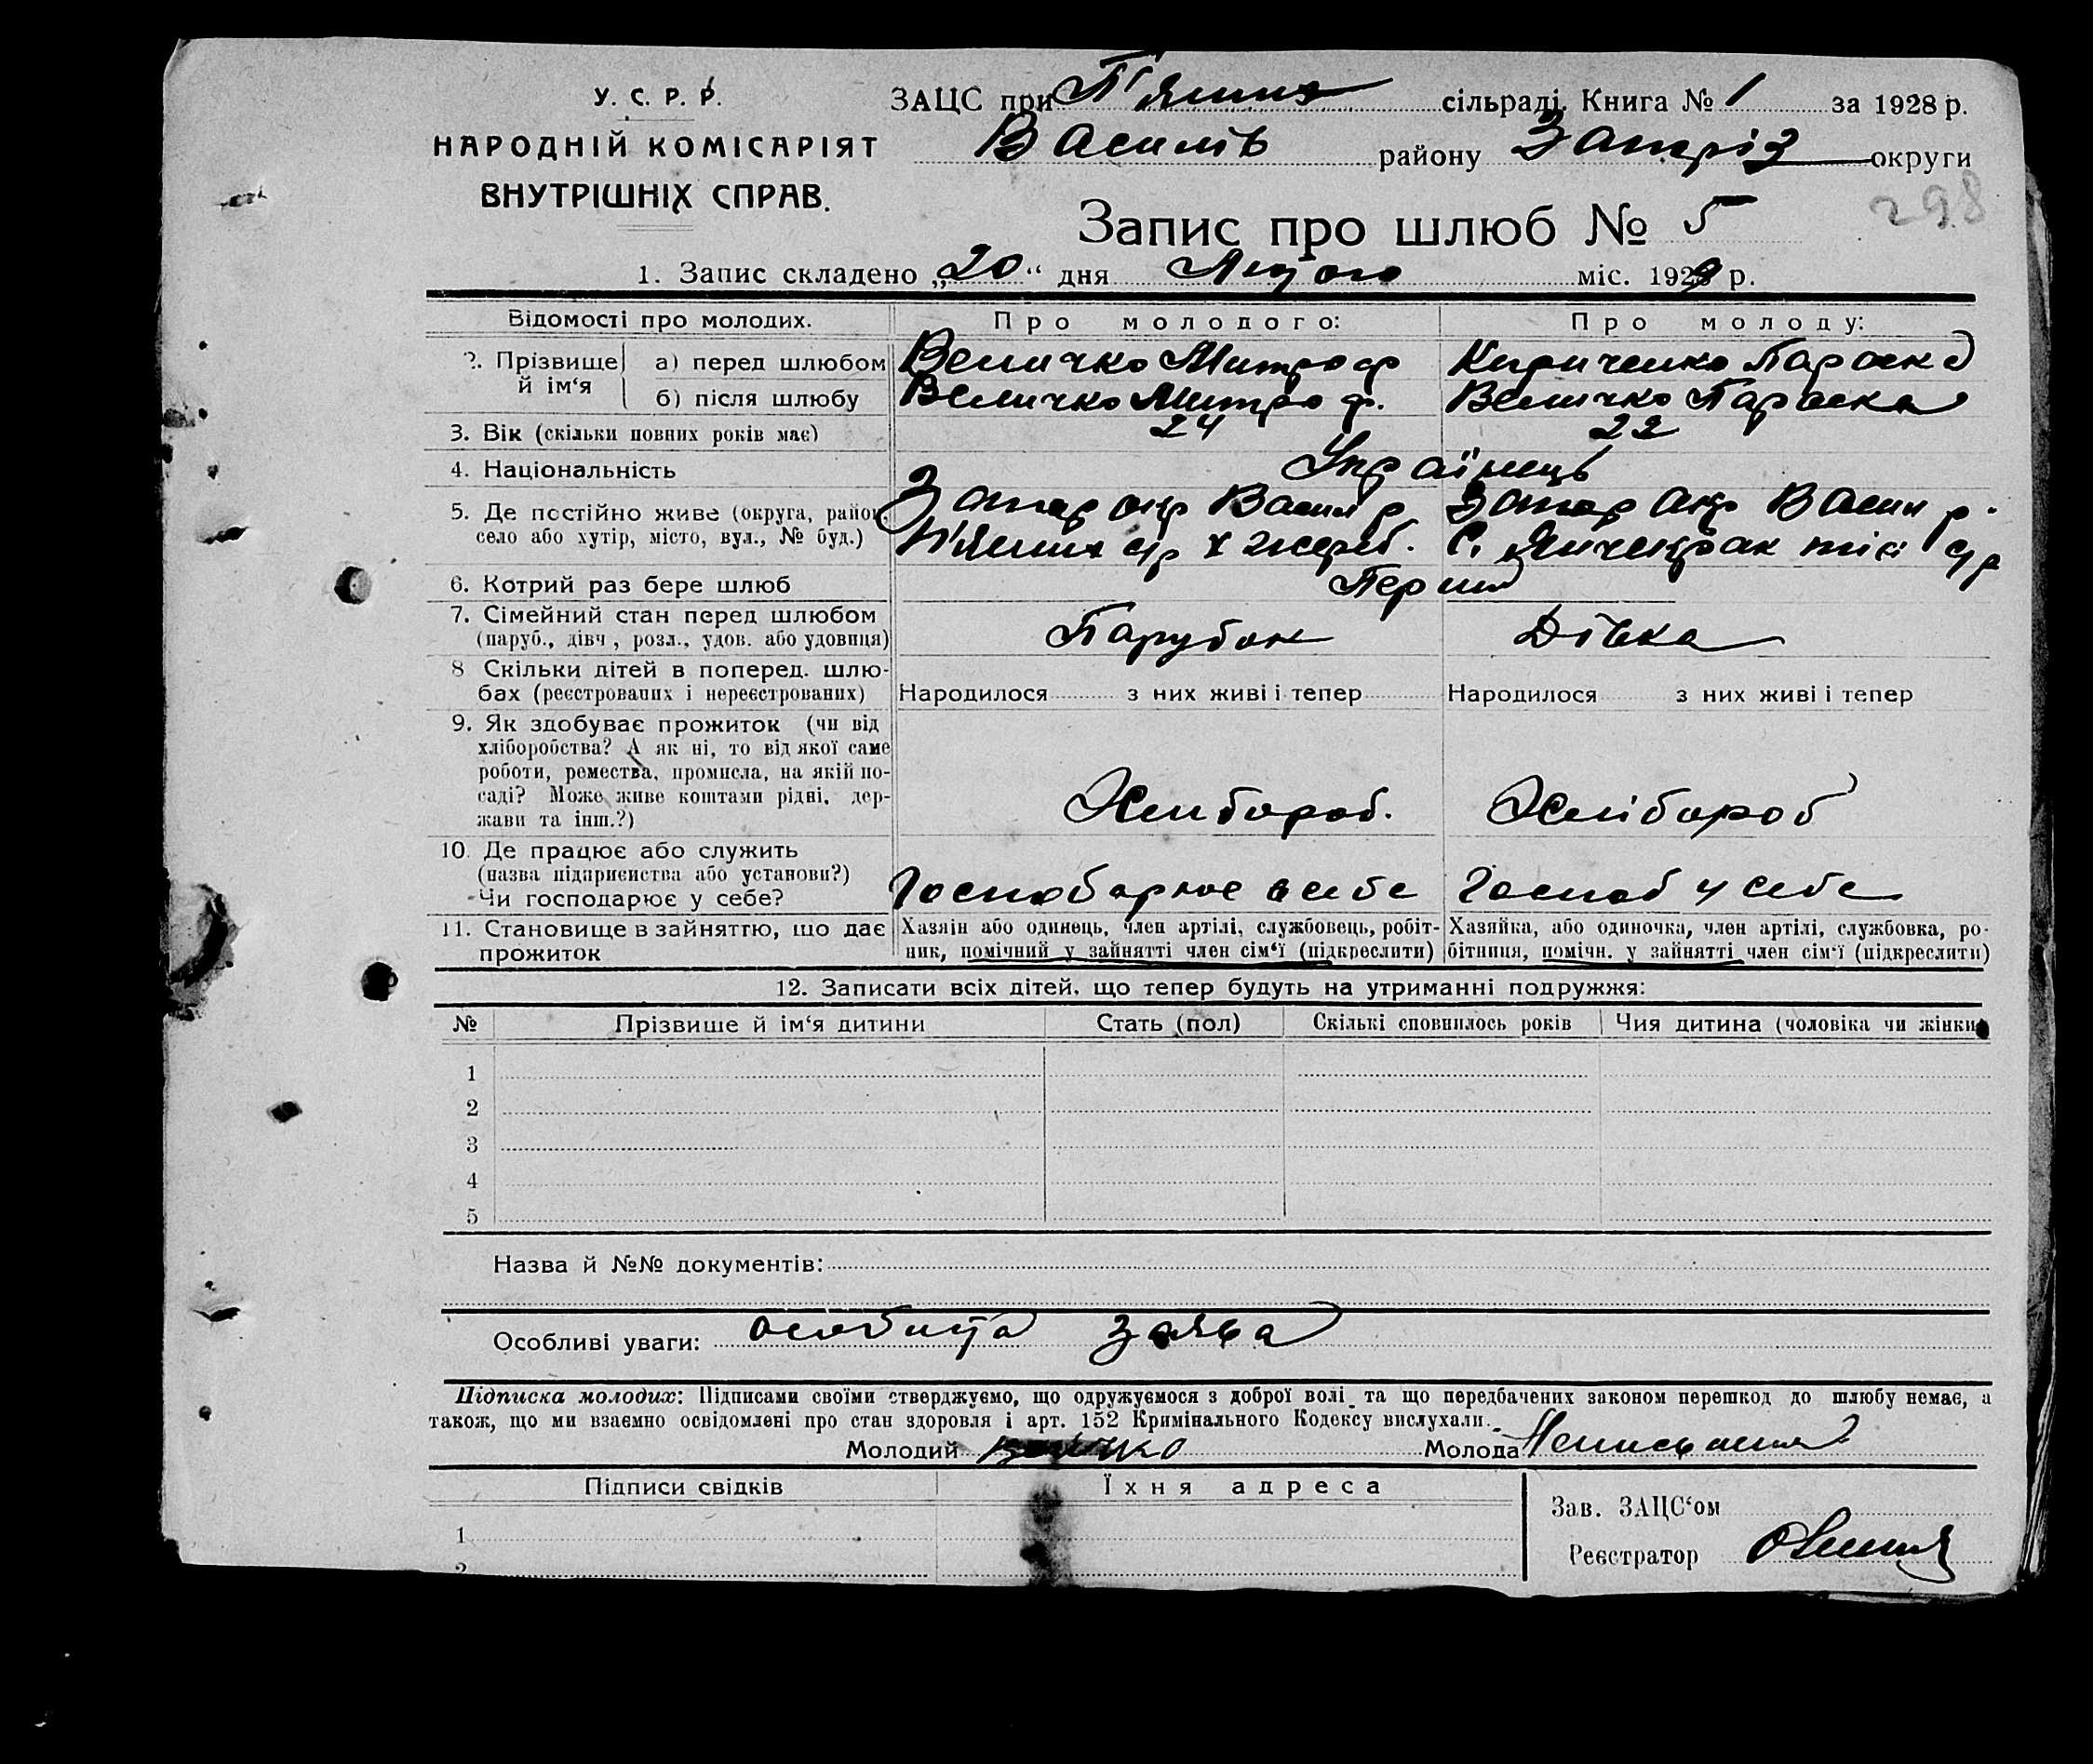 У. С. Р. Р.
НАРОДНІЙ КОМІСАРІЯТ
ВНУТРІШНІХ СПРАВ.
ЗАЦС при сільраді. Книга № 1 за 1928 р.
Василів району Запріз округи
298
Запис про шлюб № 5
1. Запис складено „20" дня Лютого міс. 1929 р.
Відомості про молодих. Про молодого: Про молоду:
2. Прізвище й ім‘я
а) перед шлюбом Величко Митроф Кириченко Параска
б) після шлюбу Величко Митроф. Величко Параска
3. Вік (скільки повних років має) 24 22
4. Національність Українець
5. Де постійно живе (округа, район, Запор окр Васил р Запор окр Васил р.
село або хутір, місто, вул., № буд.) с/р х С. Янчекрак тіє с/р
6. Котрий раз бере шлюб Перший
7. Сімейний стан перед шлюбом Парубок Дівка
(паруб., дівч., розл., удов. або удовиця)
8 Скільки дітей в поперед. шлю-
бах (реєстрованих і нереєстрованих) Народилося з них живі і тепер Народилося з них живі і тепер
9. Як здобуває прожиток (чи від
хліборобства? А як ні, то від якої саме
роботи, ремества, промисла, на якій по-
саді? Може живе коштами рідні, дер- Хлибороб. Хлібороб
жави та інш.?)
10. Де працює або служить
(назва підприємства або установи?)
Чи господарює у себе? Господарює в себе Господ у себе
11. Становище в зайняттю, що дає Хазяїн або одинець, член артілі, службовець, робіт- Хазяйка, або одиночка, член артілі, службовка, ро-
прожиток ник, помічний у зайнятті член сім‘ї (підкреслити) бітниця, помічн. у зайнятті член сім‘ї (підкреслити)
12. Записати всіх дітей, що тепер будуть на утриманні подружжя:
№ Прізвище й ім‘я дитини Стать (пол) Скількі сповнилось років Чия дитина (чоловіка чи жінки)
1
2
3
4
5
Назва й №№ документів:
Особливі уваги: особиста заява
Підписка молодих: Підписами своїми стверджуємо, що одружуємося з доброї волі та що передбачених законом перешкод до шлюбу немає, а
також, що ми взаємно освідомлені про стан здоровля і арт. 152 Кримінального Кодексу вислухали.
Молодий Величко Молода Неписьменна
Підписи свідків Їхня адреса
Зав. ЗАЦС‘ом
1
Реєстратор
2